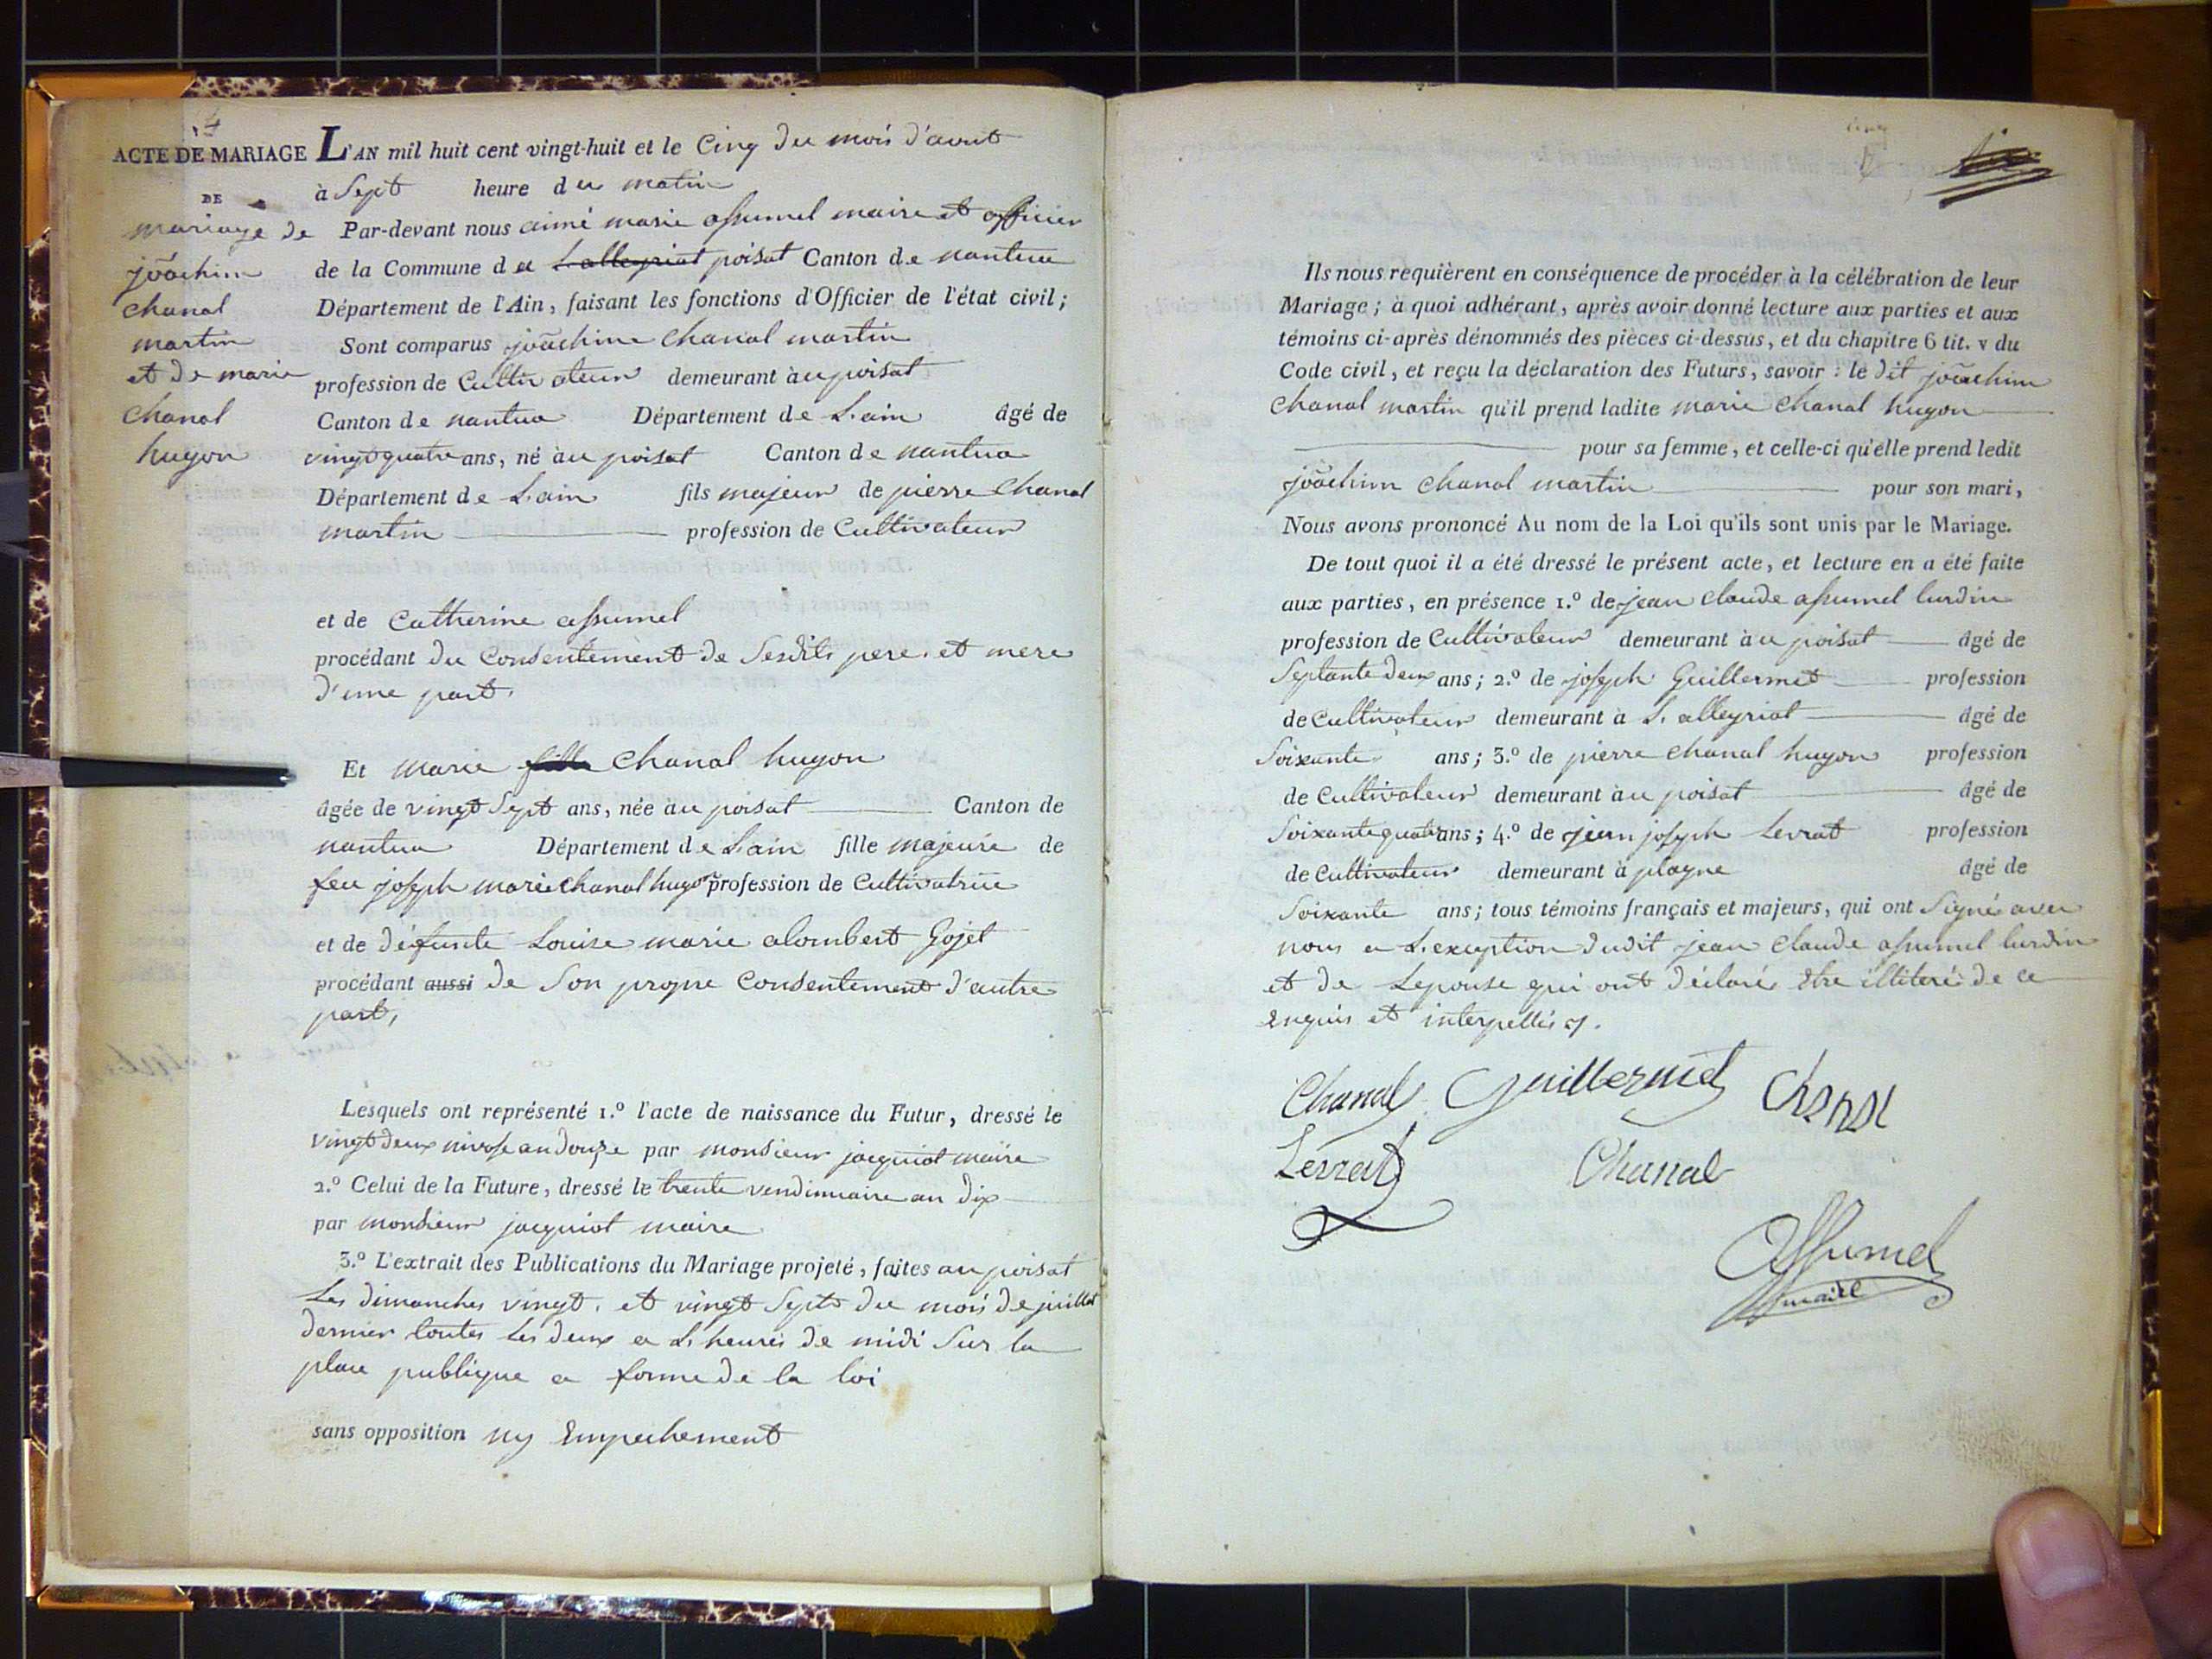 4
ACTE DE MARIAGE
DE
mariage de
joachim
chanal
martin
et de marie
chanal
hugon
L'AN mil huit cent vingt-huit et le Cinq du mois d'aout
à Sept heure du matin
Par-devant nous aimé marie assumel maire et officier
de la Commune du L'alleyriat poisat Canton de nantua
Département de l'Ain, faisant les fonctions d'Officier de l'état civil;
Sont comparus joachim Chanal martin
profession de Cultivateur demeurant au poisat
Canton de nantua Département de L'ain âgé de
vingt quatre ans, né au poisat Canton de nantua
Département de L'ain fils majeur de pierre Chanal
martin profession de Cultivateur
et de Catherine assumel
procédant du Consentement de Sesdits pere et mere
d'une part.
Et marie fille Chanal hugon
âgée de vingt Sept ans, née au poisat Canton de
nantua Département de L'ain fille majeure de
feu joseph marie chanal hugon profession de Cultivatrice
et de défunte Louise marie alombert Gojet
procédant aussi de Son propre Consentement d'autre
part,
Lesquels ont représenté 1.º l'acte de naissance du Futur, dressé le
vingt deux nivose an douze par monsieur jacquiot maire
2.º Celui de la Future, dressé le trente vendimiaire an dix
par monsieur jacquiot maire
3.º L'extrait des Publications du Mariage projeté, faites au poisat
Les dimanches vingt, et vingt Sept du mois de juillet
dernier toutes les deux a L'heure de midi Sur la
place publique a forme de la loi
sans opposition ny Empechement
cinq
Ils nous requièrent en conséquence de procéder à la célébration de leur
Mariage; à quoi adhérant, après avoir donné lecture aux parties et aux
témoins ci-après dénommés des pièces ci-dessus, et du chapitre 6 tit. v du
Code civil, et reçu la déclaration des Futurs, savoir: le dit joachim
Chanal martin qu'il prend ladite marie Chanal hugon
pour sa femme, et celle-ci qu'elle prend ledit
joachim Chanal martin pour son mari,
Nous avons prononcé Au nom de la Loi qu'ils sont unis par le Mariage.
De tout quoi il a été dressé le présent acte, et lecture en a été faite
aux parties, en présence 1.º de jean claude assumel lurdin
profession de Cultivateur demeurant au poisat âgé de
Septante deux ans; 2.º de joseph Guillermet profession
de Cultivateur demeurant à L'alleyriat âgé de
Soixante ans; 3.º de pierre chanal hugon profession
de Cultivateur demeurant au poisat âgé de
Soixante quatre ans; 4.º de jean joseph Levrat profession
de Cultivateur demeurant à plagne âgé de
Soixante ans; tous témoins français et majeurs, qui ont Signé avec
nous a L'exception dudit jean claude assumel lurdin
et de Lepouse qui ont déclaré Etre illiteré de ce
Enquis et interpellés
Chanal Guillermet Chanal
Levrat Chanal
Assumel
maire